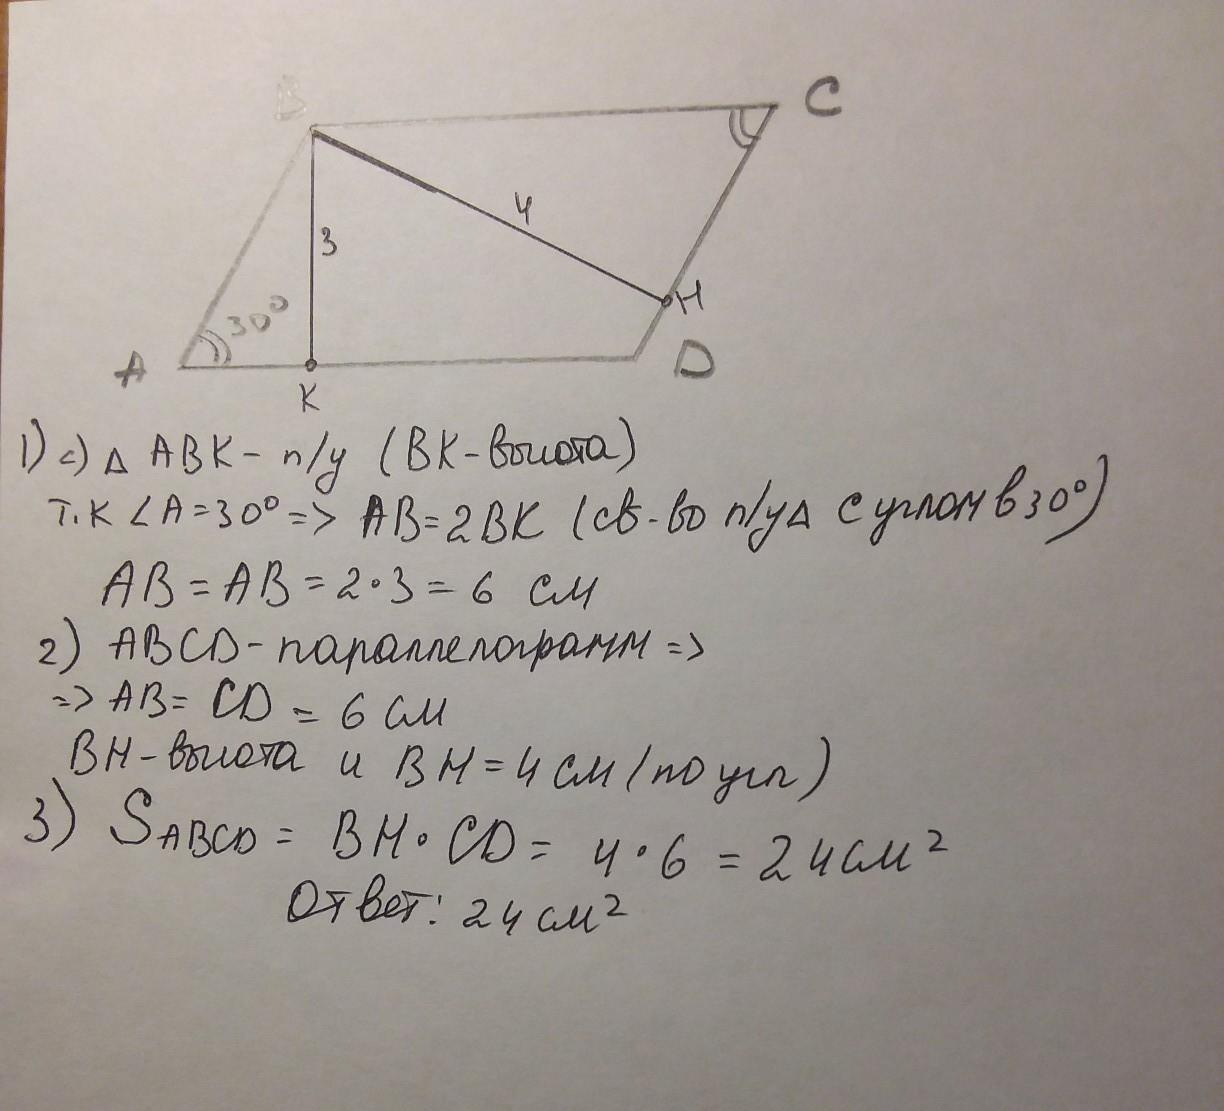 B
C
4
3
30°
H
A
D
K
1) с) Δ ABK - п/у (BK - высота)
т.к ∠A = 30° => AB = 2BK (св-во п/у Δ с углом в 30°)
AB = AB = 2·3 = 6 см
2) ABCD - параллелограмм =>
=> AB = CD = 6 см
BH - высота и BH = 4 см (по усл)
3) S ABCD = BH · CD = 4·6 = 24 см²
Ответ: 24 см²